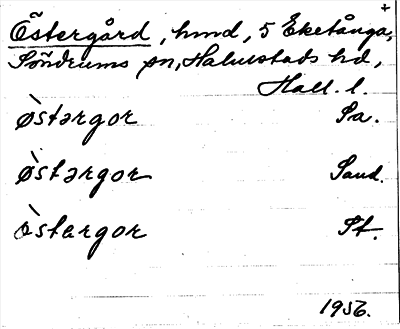 +
Östergård, hmd, 5 Eketånga,
Söndrums sn, Halmstads hd,
Hall. l.
ø̀stərgor Pa.
ø̀stərgor Sand.
östergor St.
1956.